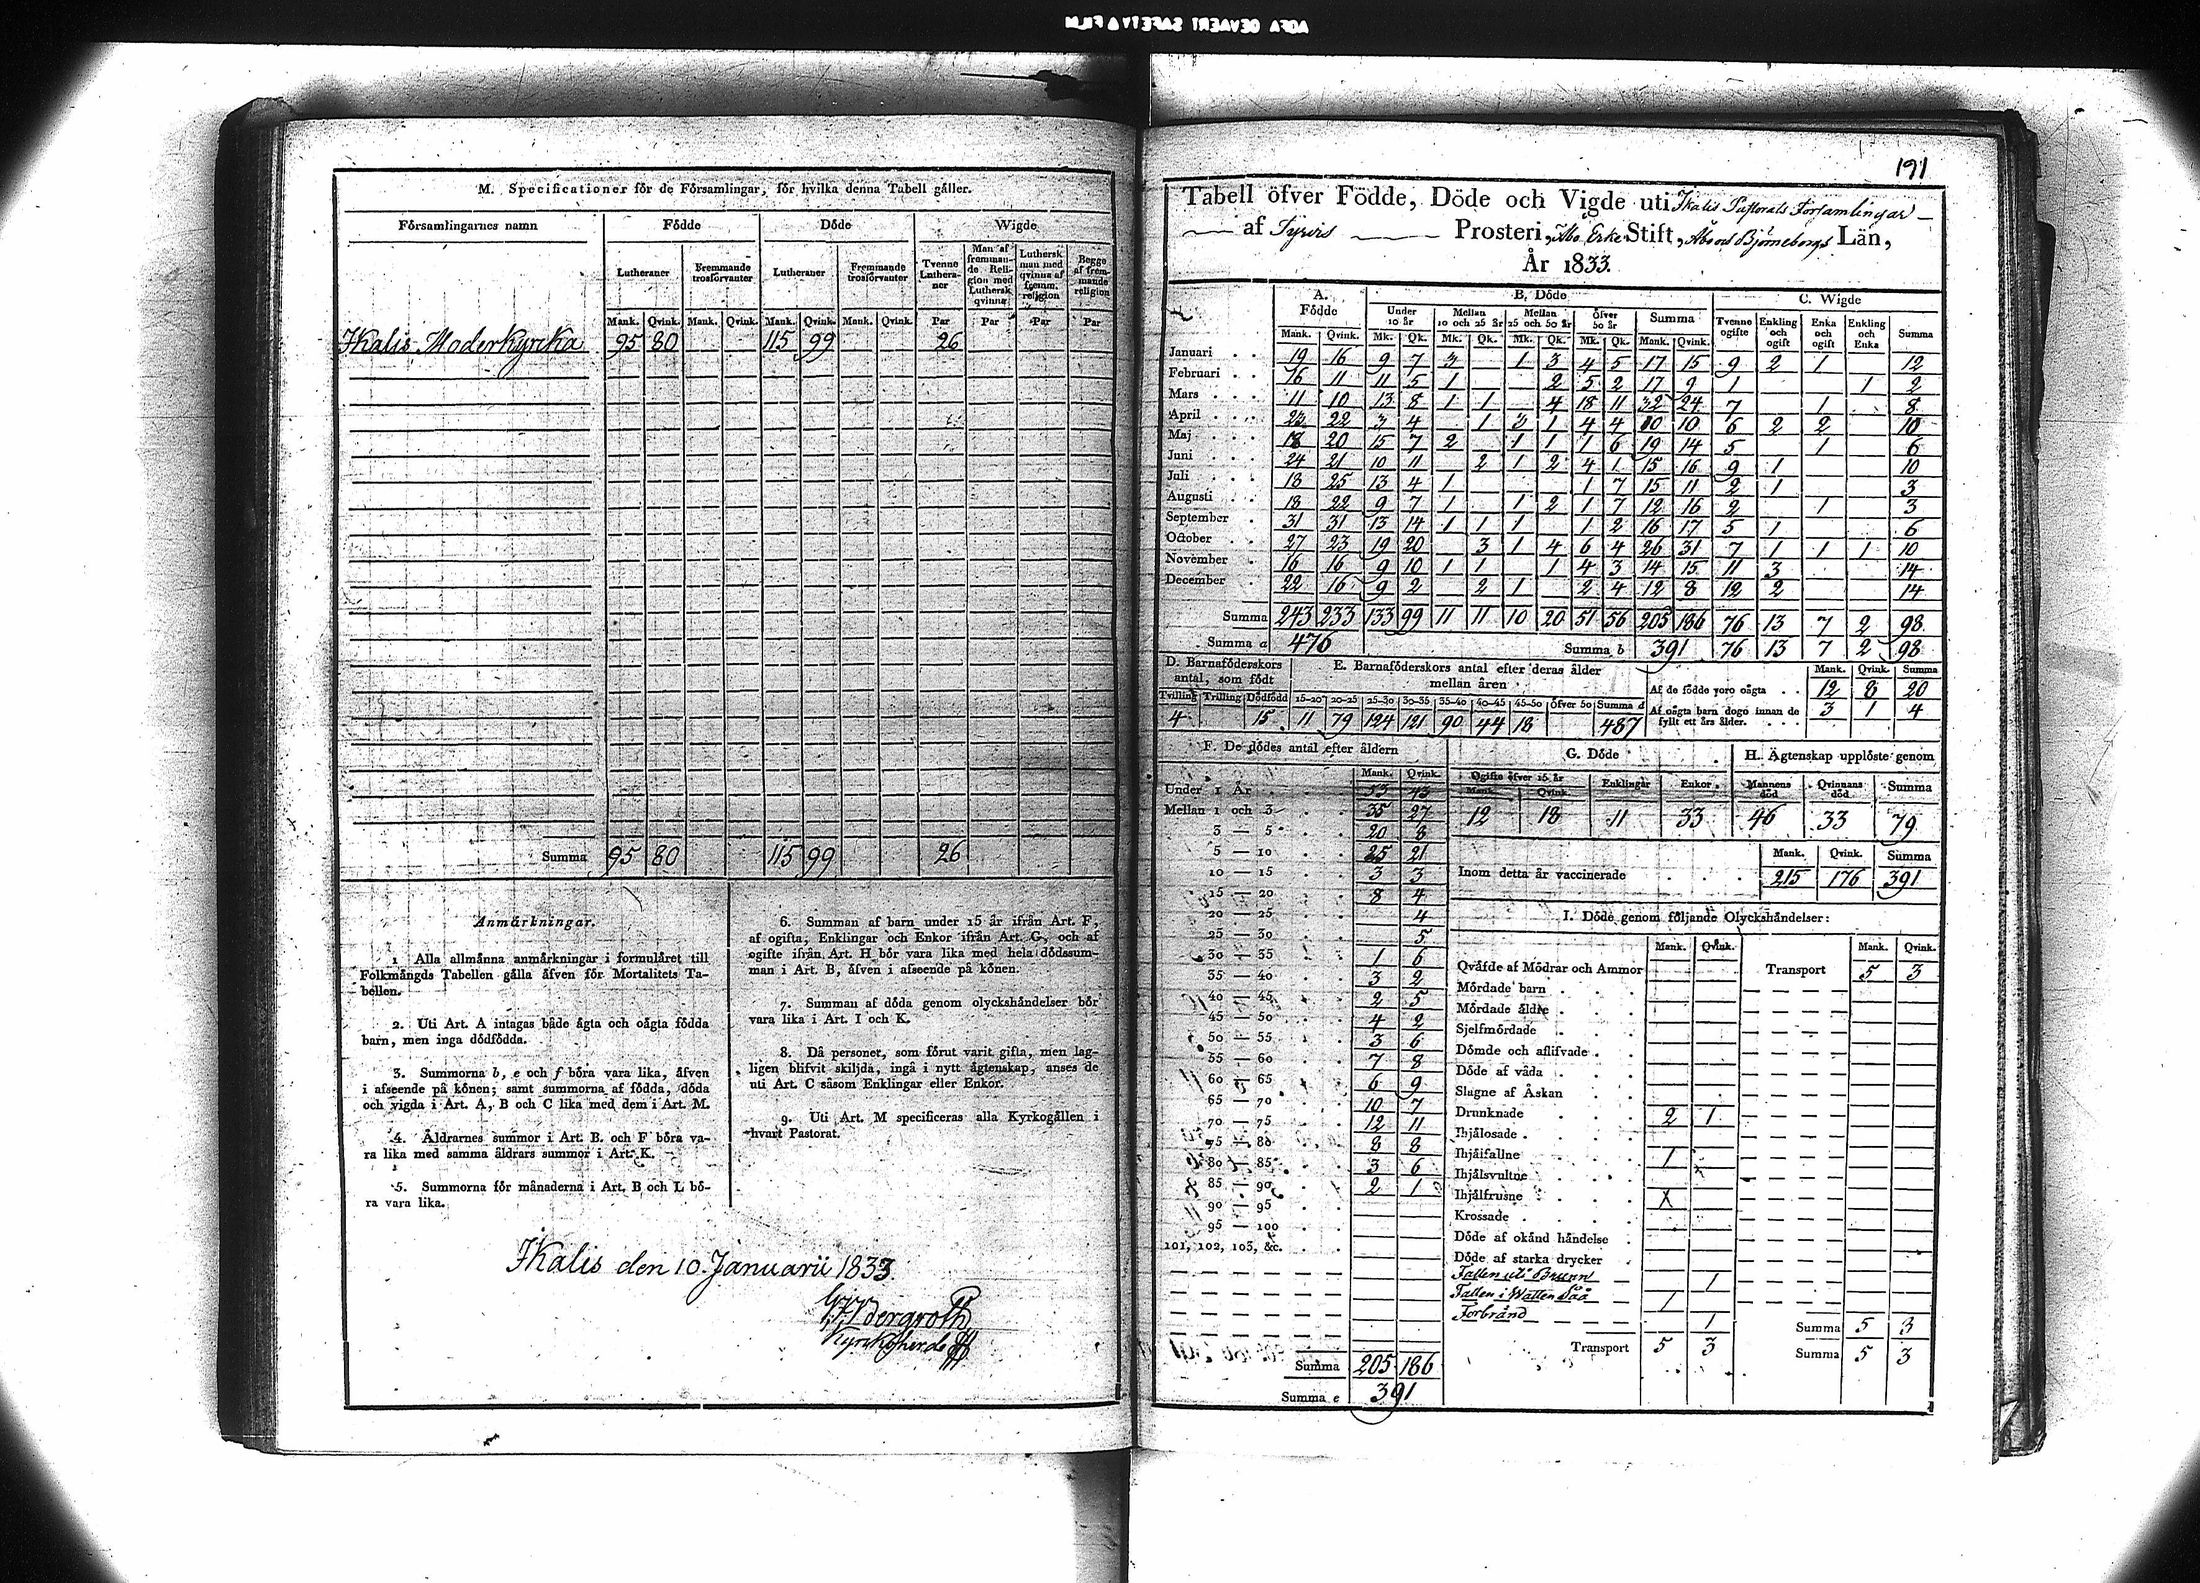 AGFA GEVAERT SAFETY FILM
M. Specificationer för de Församlingar, för hvilka denna Tabell gäller.
Församlingarnes namn Födde Döde Wigde
Lutheraner Fremmande trosförvanter Lutheraner Fremmande trosförvanter Tvenne Lutheraner Man af fremmande Religion med Luthersk qvinna Luthersk man med qvinna af fremm. religion Begge af fremmande religion
Mank. Qvink. Mank. Qvink. Mank. Qvink. Mank. Qvink. Par Par Par Par
Ikalis Moderkyrcka 95 80 115 99 26
Summa 95 80 115 99 26
Anmärkningar.
1 Alla allmänna anmärkningar i formuläret till
Folkmängds Tabellen gälla äfven för Mortalitets Ta-
bellen.
2. Uti Art. A intagas både ägta och oägta födda
barn, men inga dödfödda.
3. Summorna b, e och f böra vara lika, äfven
i afseende på könen; samt summorna af födda, döda
och vigda i Art. A, B och C lika med dem i Art. M.
4. Åldrarnes summor i Art. B. och F böra va-
ra lika med samma åldrars summor i Art. K.
5. Summorna för månaderna i Art. B och L bö-
ra vara lika.
6. Summan af barn under 15 år ifrån Art. F,
af ogifta, Enklingar och Enkor ifrån Art. G, och af
ogifte ifrån Art. H bör vara lika med hela dödssum-
man i Art. B, äfven i afseende på könen.
7. Summan af döda genom olyckshändelser bör
vara lika i Art. I och K.
8. Då personer, som förut varit gifta, men lag-
ligen blifvit skiljda, ingå i nytt ägtenskap, anses de
uti Art. C såsom Enklingar eller Enkor.
9. Uti Art. M specificeras alla Kyrkogällen i
hvart Pastorat.
Ikalis den 10. Januarii 1833
Bergroth
Kyrckoherde
191
Tabell öfver Födde, Döde och Vigde uti Ikalis Pastorats Församlingar
af Tyrvis Prosteri, Åbo Erke Stift, Åbo och Björneborgs Län,
År 1833.
A. Födde B. Döde C. Wigde
Under 10 år Mellan 10 och 25 år Mellan 25 och 50 år Öfver 50 år Summa Tvenne ogifte Enkling och ogift Enka och ogift Enkling och Enka Summa
Mank. Qvink. Mk. Qk. Mk. Qk. Mk. Qk. Mk. Qk. Mank. Qvink.
Januari 19 16 9 7 3 1 3 4 5 17 15 9 2 1 12
Februari 16 11 11 5 1 2 5 2 17 9 1 1 2
Mars 11 10 13 8 1 1 4 18 11 32 24 7 1 8
April 23 22 3 4 1 3 1 4 4 10 10 6 2 2 10
Maj 18 20 15 7 2 1 1 1 6 19 14 5 1 6
Juni 24 21 10 11 2 1 2 4 1 15 16 9 1 10
Juli 18 25 13 4 1 1 7 15 11 2 1 3
Augusti 18 22 9 7 1 1 2 1 7 12 16 2 1 3
September 31 31 13 14 1 1 1 1 2 16 17 5 1 6
October 27 23 19 20 3 1 4 6 4 26 31 7 1 1 1 10
November 16 16 9 10 1 1 1 4 3 14 15 11 3 14
December 22 16 9 2 2 1 2 4 12 8 12 2 14
Summa 243 233 133 99 11 11 10 20 51 56 205 186 76 13 7 2 98
Summa a 476 Summa b 391 76 13 7 2 98
D. Barnaföderskors antal, som födt E. Barnaföderskors antal efter deras ålder mellan åren
Mank. Qvink. Summa
Tvilling Trilling Dödfödd 15–20 20–25 25–30 30–35 35–40 40–45 45–50 öfver 50 Summa d
4 15 11 79 124 121 90 44 18 487
Af de födde voro oägta 12 8 20
Af oägta barn dogo innan de fyllt ett års ålder. 3 1 4
F. De dödes antal efter åldern
Mank. Qvink.
Under 1 År 53 43
Mellan 1 och 3 35 27
3 — 5 20 8
5 — 10 25 21
10 — 15 3 3
15 — 20 8 4
20 — 25 4
25 — 30 5
30 — 35 1 6
35 — 40 3 2
40 — 45 2 5
45 — 50 4 2
50 — 55 3 6
55 — 60 7 8
60 — 65 6 9
65 — 70 10 7
70 — 75 12 11
75 — 80 8 8
80 — 85 3 6
85 — 90 2 1
90 — 95
95 — 100
101, 102, 103, &c.
Summa 205 186
Summa e 391
G. Döde
Ogifte öfver 15 år Enklingar Enkor
Mank. Qvink.
12 18 11 33
H. Ägtenskap upplöste genom
Mannens död Qvinnans död Summa
46 33 79
Mank. Qvink. Summa
Inom detta år vaccinerade 215 176 391
I. Döde genom följande Olyckshändelser:
Mank. Qvink. Mank. Qvink.
Qväfde af Mödrar och Ammor Transport 5 3
Mördade barn
Mördade äldre
Sjelfmördade
Dömde och aflifvade
Döde af våda
Slagne af Åskan
Drunknade 2 1
Ihjälosade
Ihjälfallne 1
Ihjälsvultne
Ihjälfrusne
Krossade
Döde af okänd händelse
Döde af starka drycker
Fallen uti Brunn 1
Fallen i Watten Såå 1
Förbränd 1
Summa 5 3
Transport 5 3 Summa 5 3